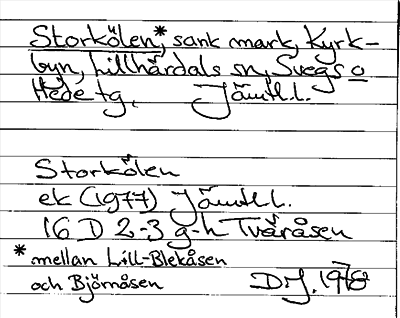 Storkölen,* sank mark, Kyrk-
byn, Lillhärdals sn, Svegs o
Hede tg, Jämtl.l.
Storkölen
ek (1977) Jämtl.l.
16 D 2-3 g-h Tvåråsen
* mellan Lill-Blekåsen
och Björnåsen DJ. 1978